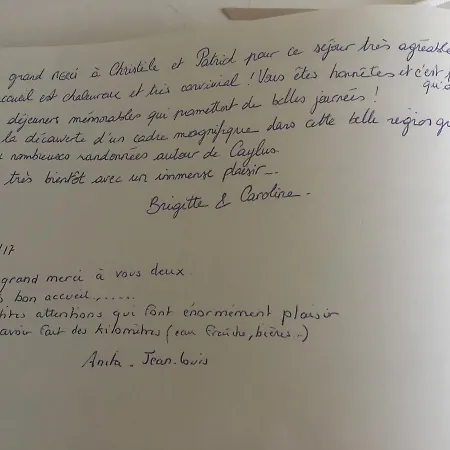 grand merci à Christèle et Patrick pour ce séjour très agréable
accueil est chaleureux et très convivial ! Vous êtes honnêtes et c'est
déjeuners mémorables qui promettent de belles journées !
la découverte d'un cadre magnifique dans cette belle region
nombreuses randonnées autour de Caylus.
très bientôt avec un immense plaisir_.
Brigitte & Caroline.
/17
grand merci à vous deux.
bon accueil,.....
attentions qui font énormément plaisir
avoir fait des kilomètres (eau fraîche, bières..)
Anita - Jean-Louis